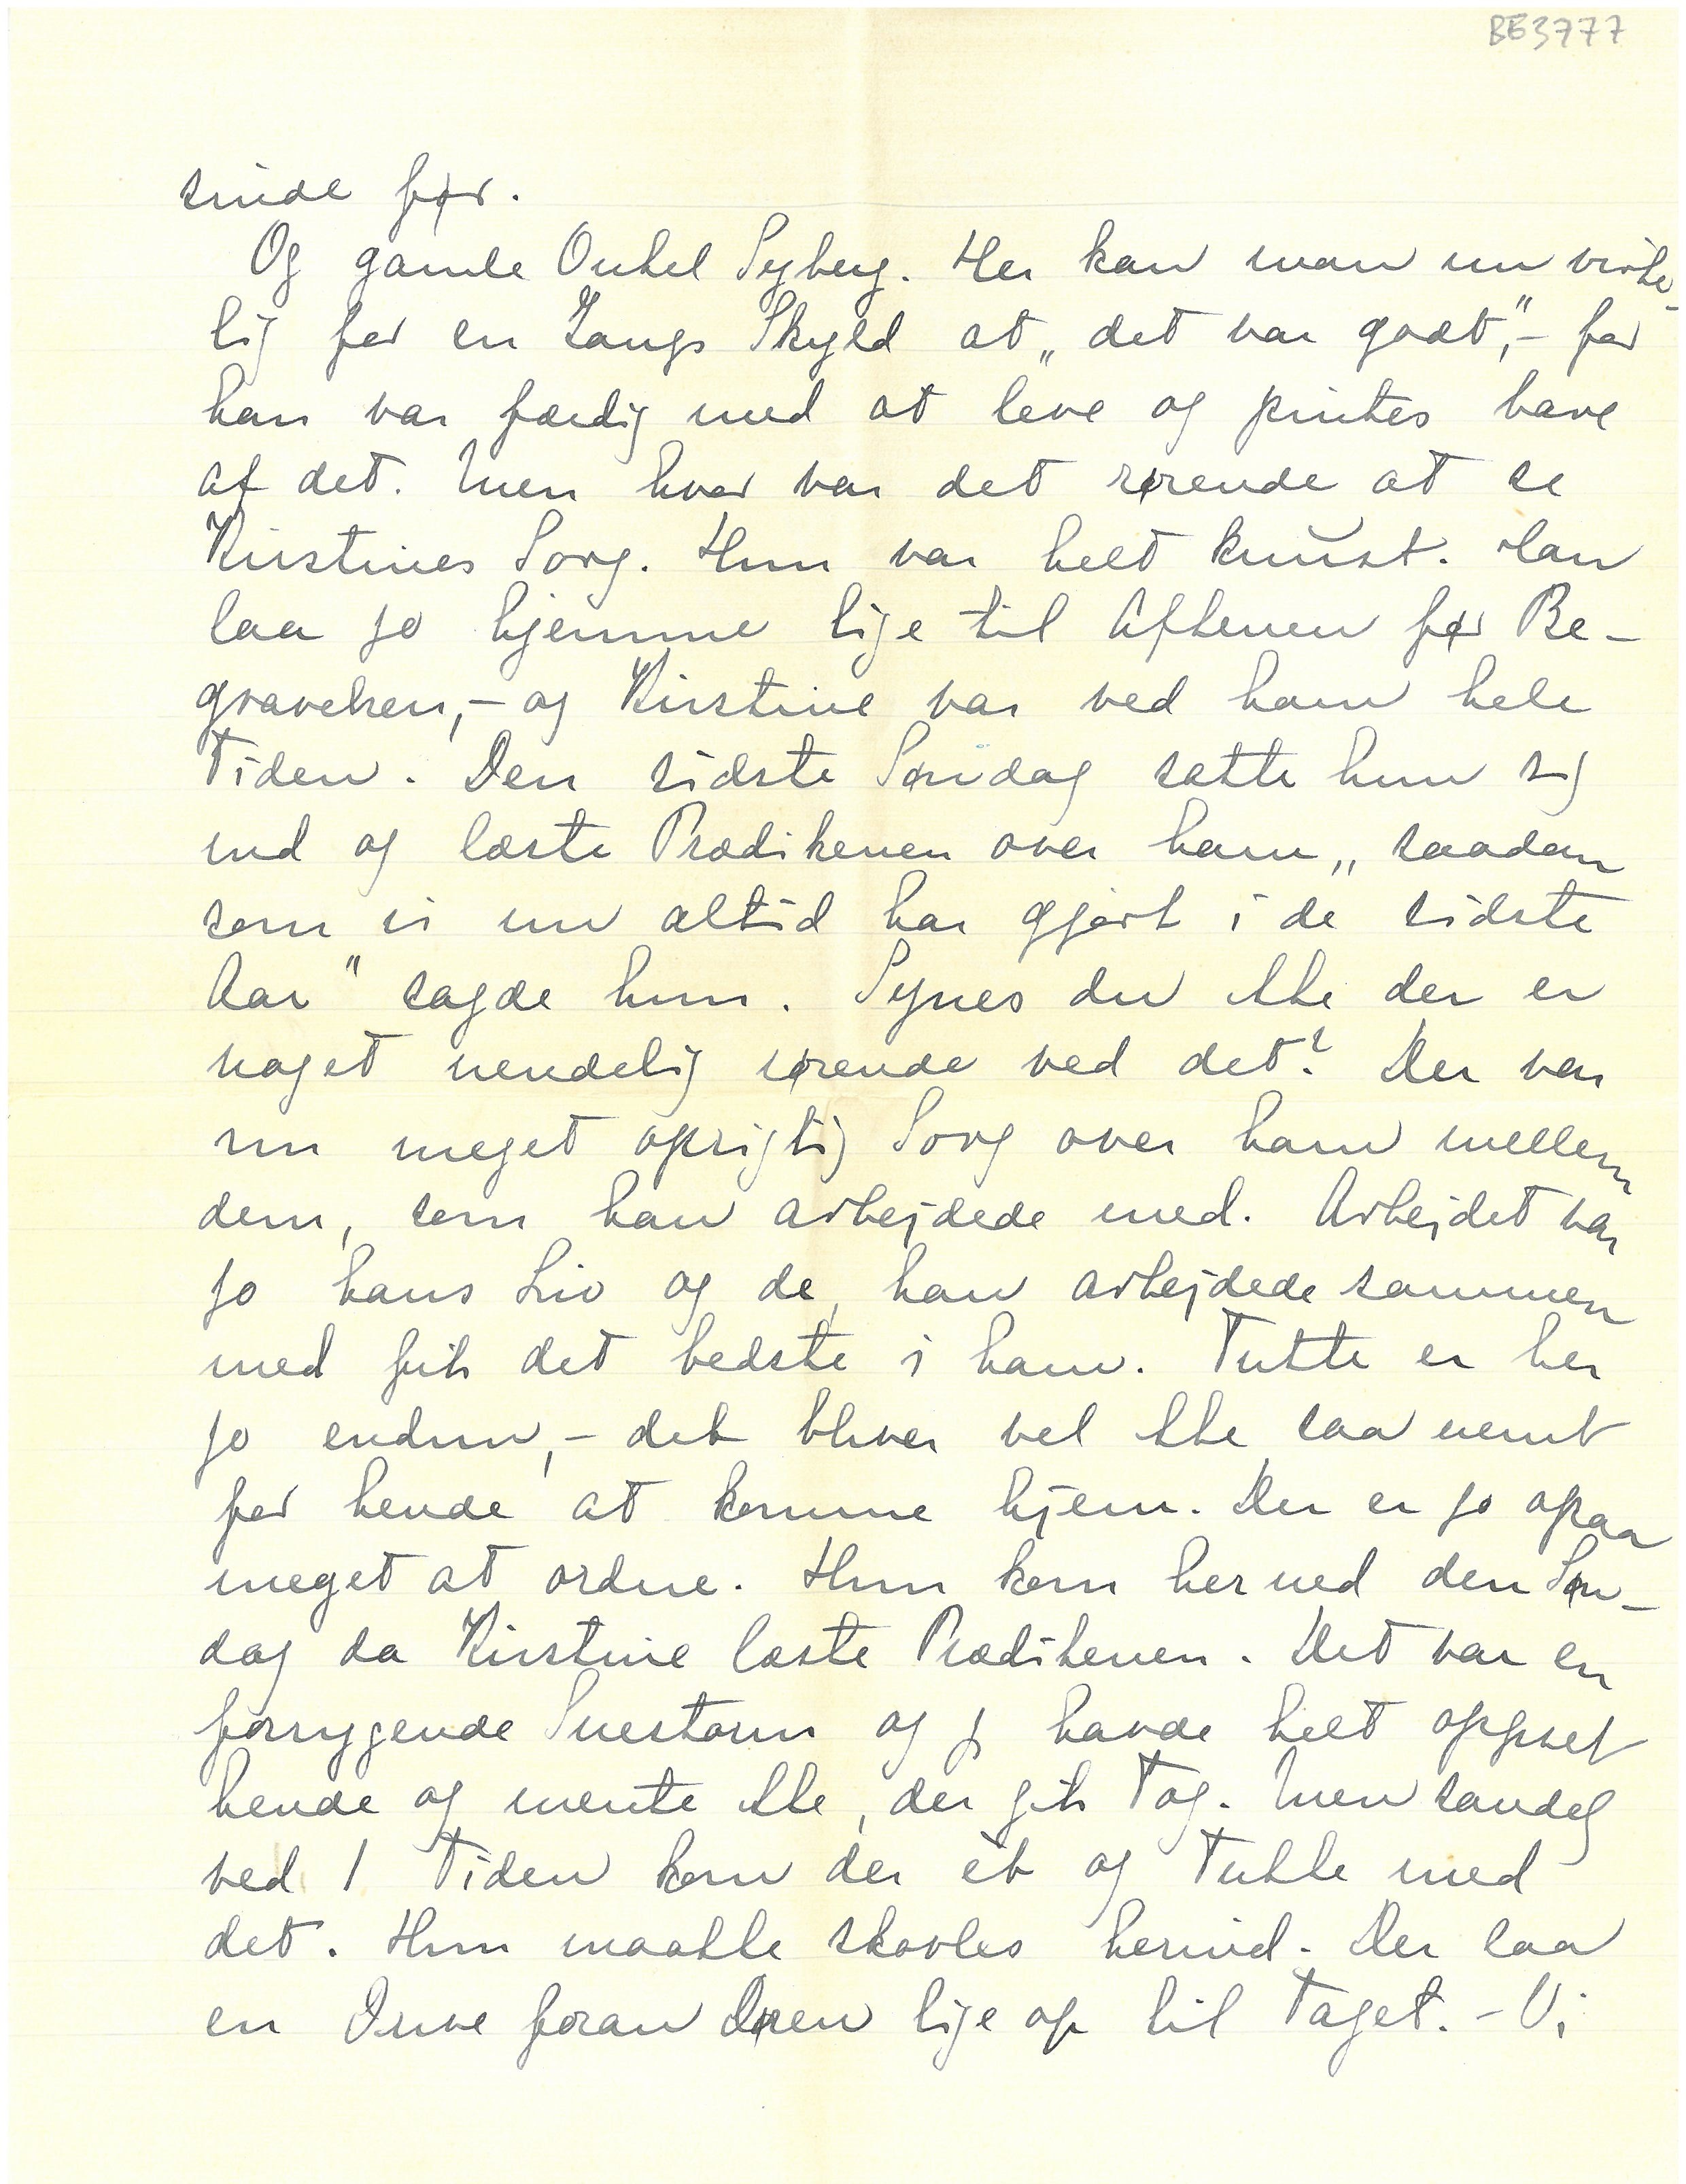 BE3777
sinde før.
Og gamle Onkel Syberg. Her kan man nu virke-
lig for en Gangs Skyld at „det var godt”,- for
han var færdig med at leve og pintes bare
af det. Men hvor var det rørende at se
Kirstines Sorg. Hun var helt knŭst. Han
laa jo hjemme lige til Aftenen før Be-
gravelsen,- og Kirstine var ved ham hele
Tiden. Den sidste Søndag satte hun sig
ind og læste Prædikenen over ham „saadan
som vi nu altid har gjort i de sidste
Aar” sagde hun. Synes du ikke der er
noget uendelig rørende ved det? Der var
nu meget oprigtig Sorg over ham mellem
dem, som han arbejdede med. Arbejdet var
jo hans Liv og de, han arbejdede sammen
med fik det bedste i ham. Tutte er her
jo endnu,- det bliver vel ikke saa nemt
for hende at komme hjem. Der er jo ogsaa
meget at ordne. Hun kom herned den Søn-
dag da Kirstine læste Prædikenen. Det var en
forrygende Snestorm og jeg havde helt opgivet
hende og mente ikke, der gik Tog. Men sandelig
ved 1 Tiden kom der èt og Tutte med
det. Hun maatte skovles herind. Der laa
en Drive foran Døren lige op til Taget. - Vi